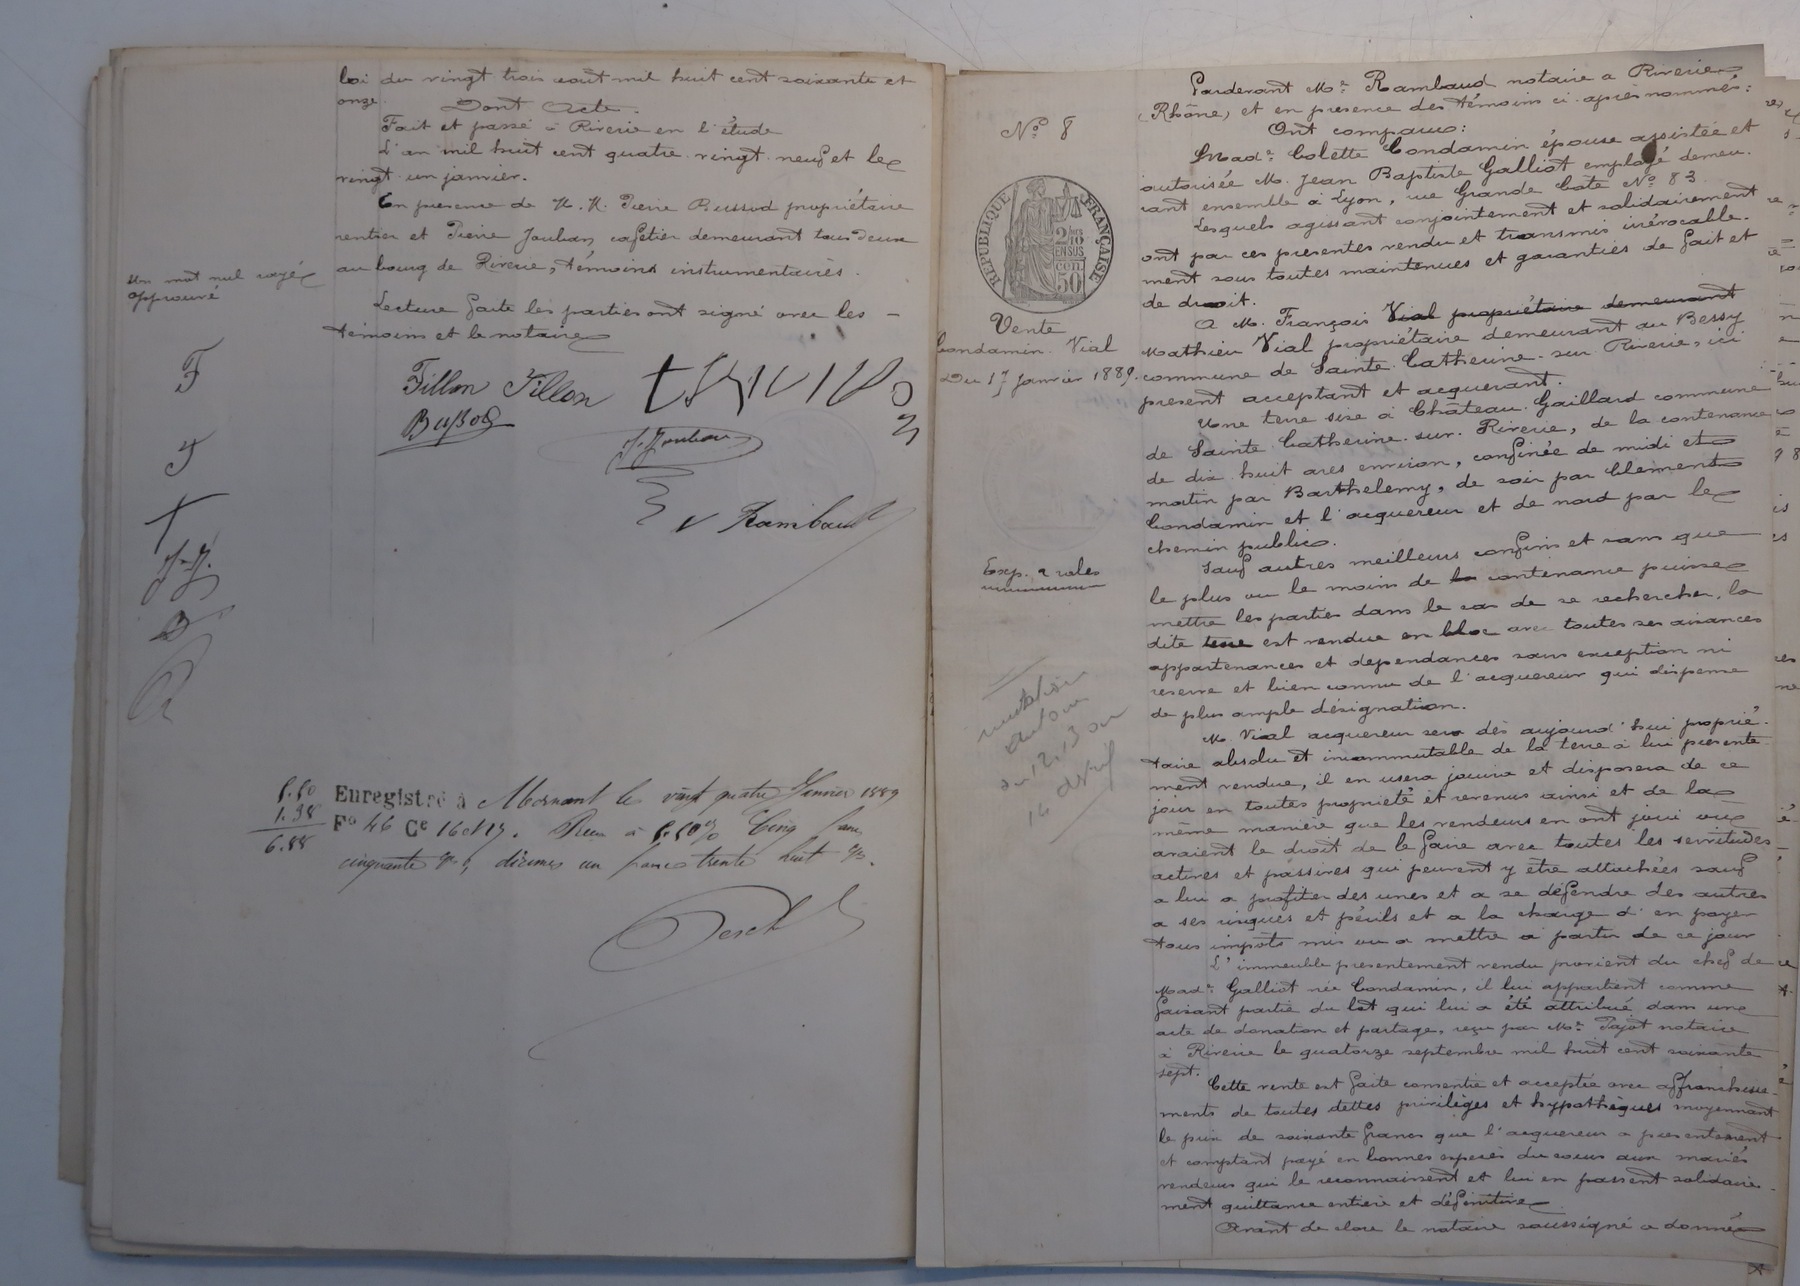 loi du vingt trois aout mil huit cent soixante et
onze.
Dont Acte.
Fait et passé à Riverie en l'étude
L'an mil huit cent quatre vingt neuf et le
vingt un janvier.
En presence de M. M. Pierre Bussod propriétaire
rentier et Pierre Jouban cafetier demeurant tous deux
au bourg de Riverie, témoins instrumentaires.
Un mot nul rayé
approuvé
Lecture faite les parties ont signé avec les
témoins et le notaire
Fillon Fillon
Bussod
J. Jouban
Rambaud
F
J
J. J.
R
5.50
1.38
6.88
Enregistré à Mornant le vingt quatre Janvier 1889
Fo 46 Ce Reçu à 5.50% Cinq francs
cinquante dixmes un franc trente huit
No 8
RÉPUBLIQUE FRANÇAISE
2/10 EN SUS
50
Vente
Condamin Vial
Du 17 Janvier 1889.
Exp. 2 roles
mutation
12, 13 ou
14
Pardevant Me Rambaud notaire a Riverie
(Rhône) et en presence des témoins ci-après nommés:
Ont comparu:
Made Colette Condamin épouse assistée et
autorisée M. Jean Baptiste Galliot employé demeu-
rant ensemble à Lyon, rue Grande Côte No 83
Lesquels agissant conjointement et solidairement
ont par ces presentes vendu et transmis irrévocable-
ment sous toutes maintenues et garanties de fait et
de droit.
A M. François Vial propriétaire demeurant
Mathieu Vial propriétaire demeurant au Bessy
commune de Sainte Catherine-sur-Riverie, ici
present acceptant et acquerant.
Une terre sise à Château-Gaillard commune
de Sainte Catherine-sur-Riverie, de la contenance
de dix huit ares environ, confinée de midi et
matin par Barthelemy, de soir par Clement
Condamin et l'acquereur et de nord par le
chemin public.
Sauf autres meilleurs confins et sans que
le plus ou le moins de la contenance puisse
mettre les parties dans le cas de se rechercher, la
dite terre est vendue en bloc avec toutes ses aisances
appartenances et dependances sans exception ni
reserve et bien connue de l'acquereur qui dispense
de plus ample désignation.
M. Vial acquereur sera dès aujourd'hui proprié-
taire absolu et incommutable de la terre à lui presente-
ment vendue, il en usera jouira et disposera de ce
jour en toutes propriété et revenus ainsi et de la
même manière que les vendeurs en ont joui ou
avaient le droit de le faire avec toutes les servitudes
actives et passives qui peuvent y être attachées sauf
a lui a profiter des unes et a se défendre des autres
a ses risques et périls et a la charge d'en payer
tous impôts mis ou a mettre a partir de ce jour
L'immeuble presentement vendu provient du chef de
Made Galliot née Condamin, il lui appartient comme
faisant partie du lot qui lui a été attribué dans une
acte de donation et partage, reçu par Me Pajot notaire
à Riverie le quatorze septembre mil huit cent soixante
sept.
Cette vente est faite consentie et acceptée avec affranchisse-
ments de toutes dettes privilèges et hypothèques moyennant
le prix de soixante francs que l'acquereur a presentement
et comptant payé en bonnes espèces du cours aux mariés
vendeurs qui le reconnaissent et lui en passent solidaire-
ment quittance entière et définitive
Avant de clore le notaire soussigné a donné